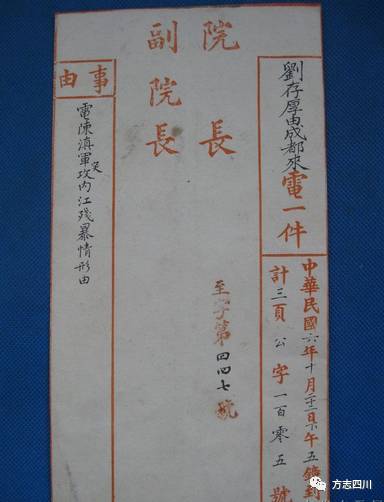 劉存厚由成都來電一件
中華民國六年十月二十二日下午五鐘到
計三頁公字一百零五號
院長
副院長
至字第四四七號
事由
電陳滇軍攻内江殘暴情形由
方志四川